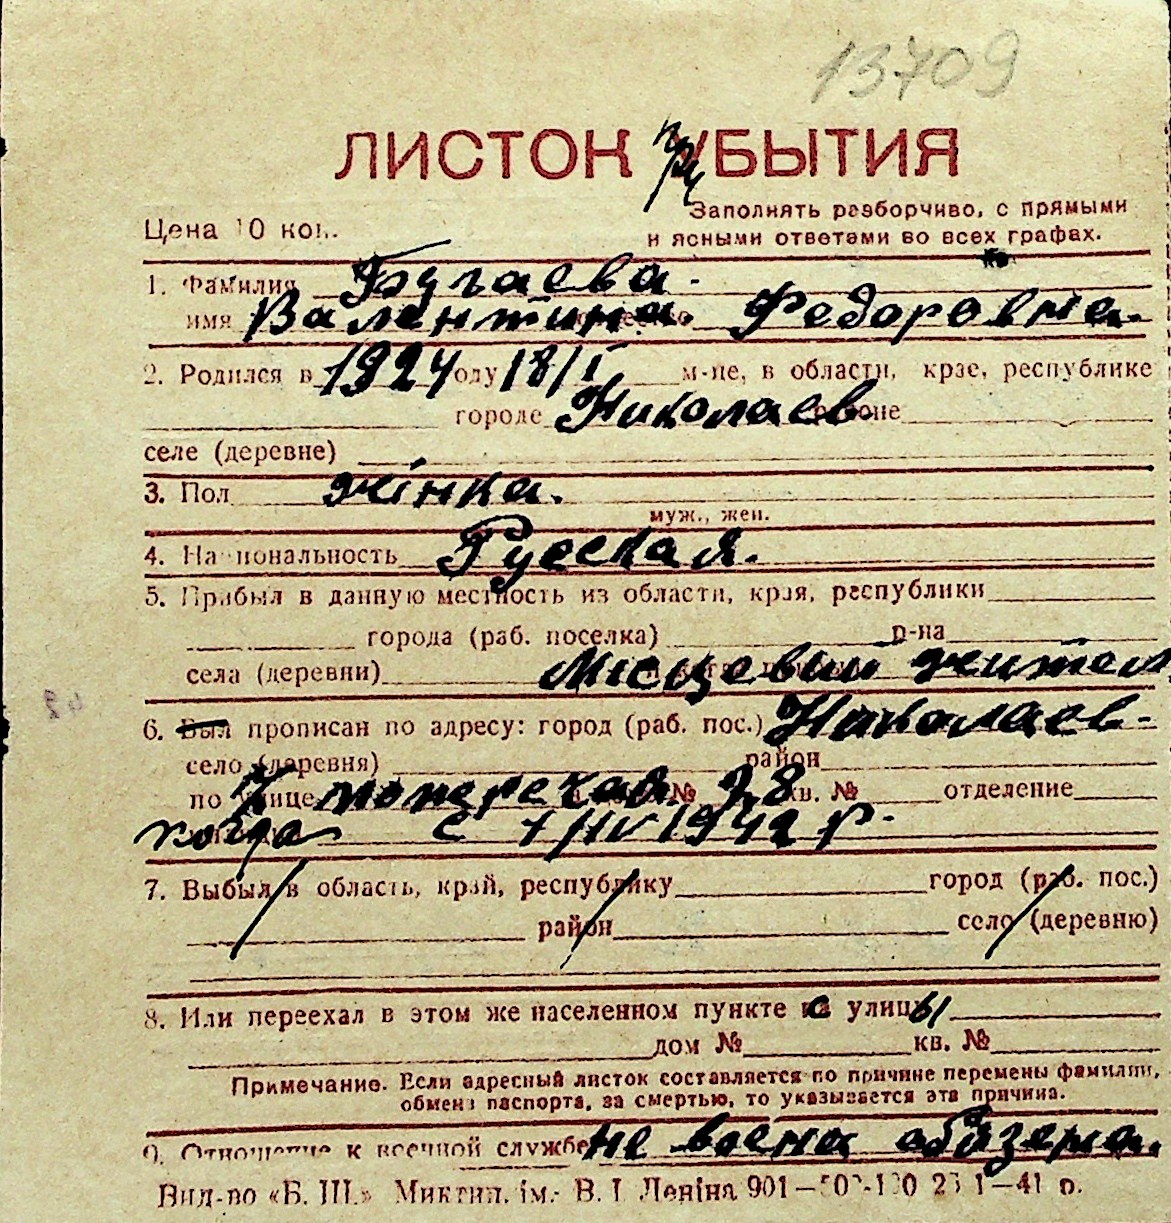 13709
ЛИСТОК при УБЫТИЯ
Цена 10 коп. Заполнять разборчиво, с прямыми
и ясными ответами во всех графах.
1. Фамилия Бугаева.
имя Валентина Федоровна.
2. Родился в 1924 году 18/I м-це, в области, крае, республике
городе Николаев районе
селе (деревне)
3. Пол жінка.
муж., жен.
4. Национальность Русская.
5. Прибыл в данную местность из области, края, республики
города (раб. поселка) р-на
села (деревни) Місцевий жител
6. Был прописан по адресу: город (раб. пос.) Николаев.
село (деревня) район
по улице поперечая № 78 кв. № отделение
когда с 1/IV 1942 р.
7. Выбыл в область, край, республику город (раб. пос.)
район село (деревню)
8. Или переехал в этом же населенном пункте с улицы
дом № кв. №
Примечание. Если адресный листок составляется по причине перемены фамилии,
обмена паспорта, за смертью, то указывается эта причина.
9. Отношение к военной службе не воена обязема.
Вид-во «Б. Ш.» Миктип. ім. В. І Леніна 901— —41 р.